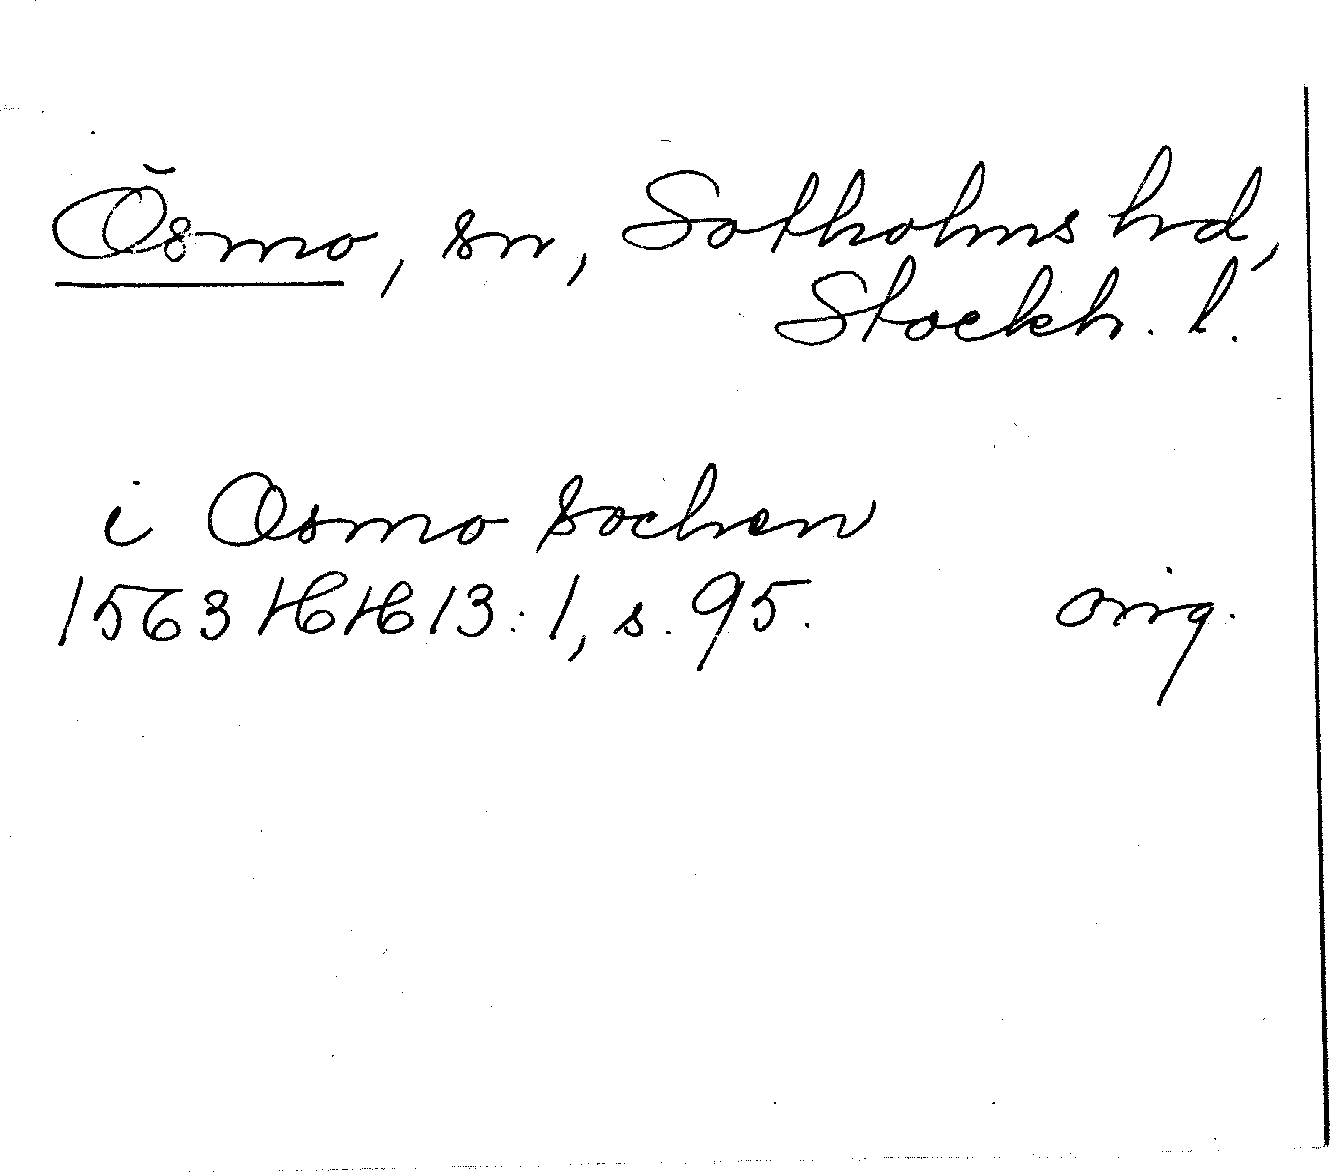 Ösmo, sn, Sotholms hd,
Stockh. l.
i Osmo Sochen
1563 HH 13:1, s. 95. orig.